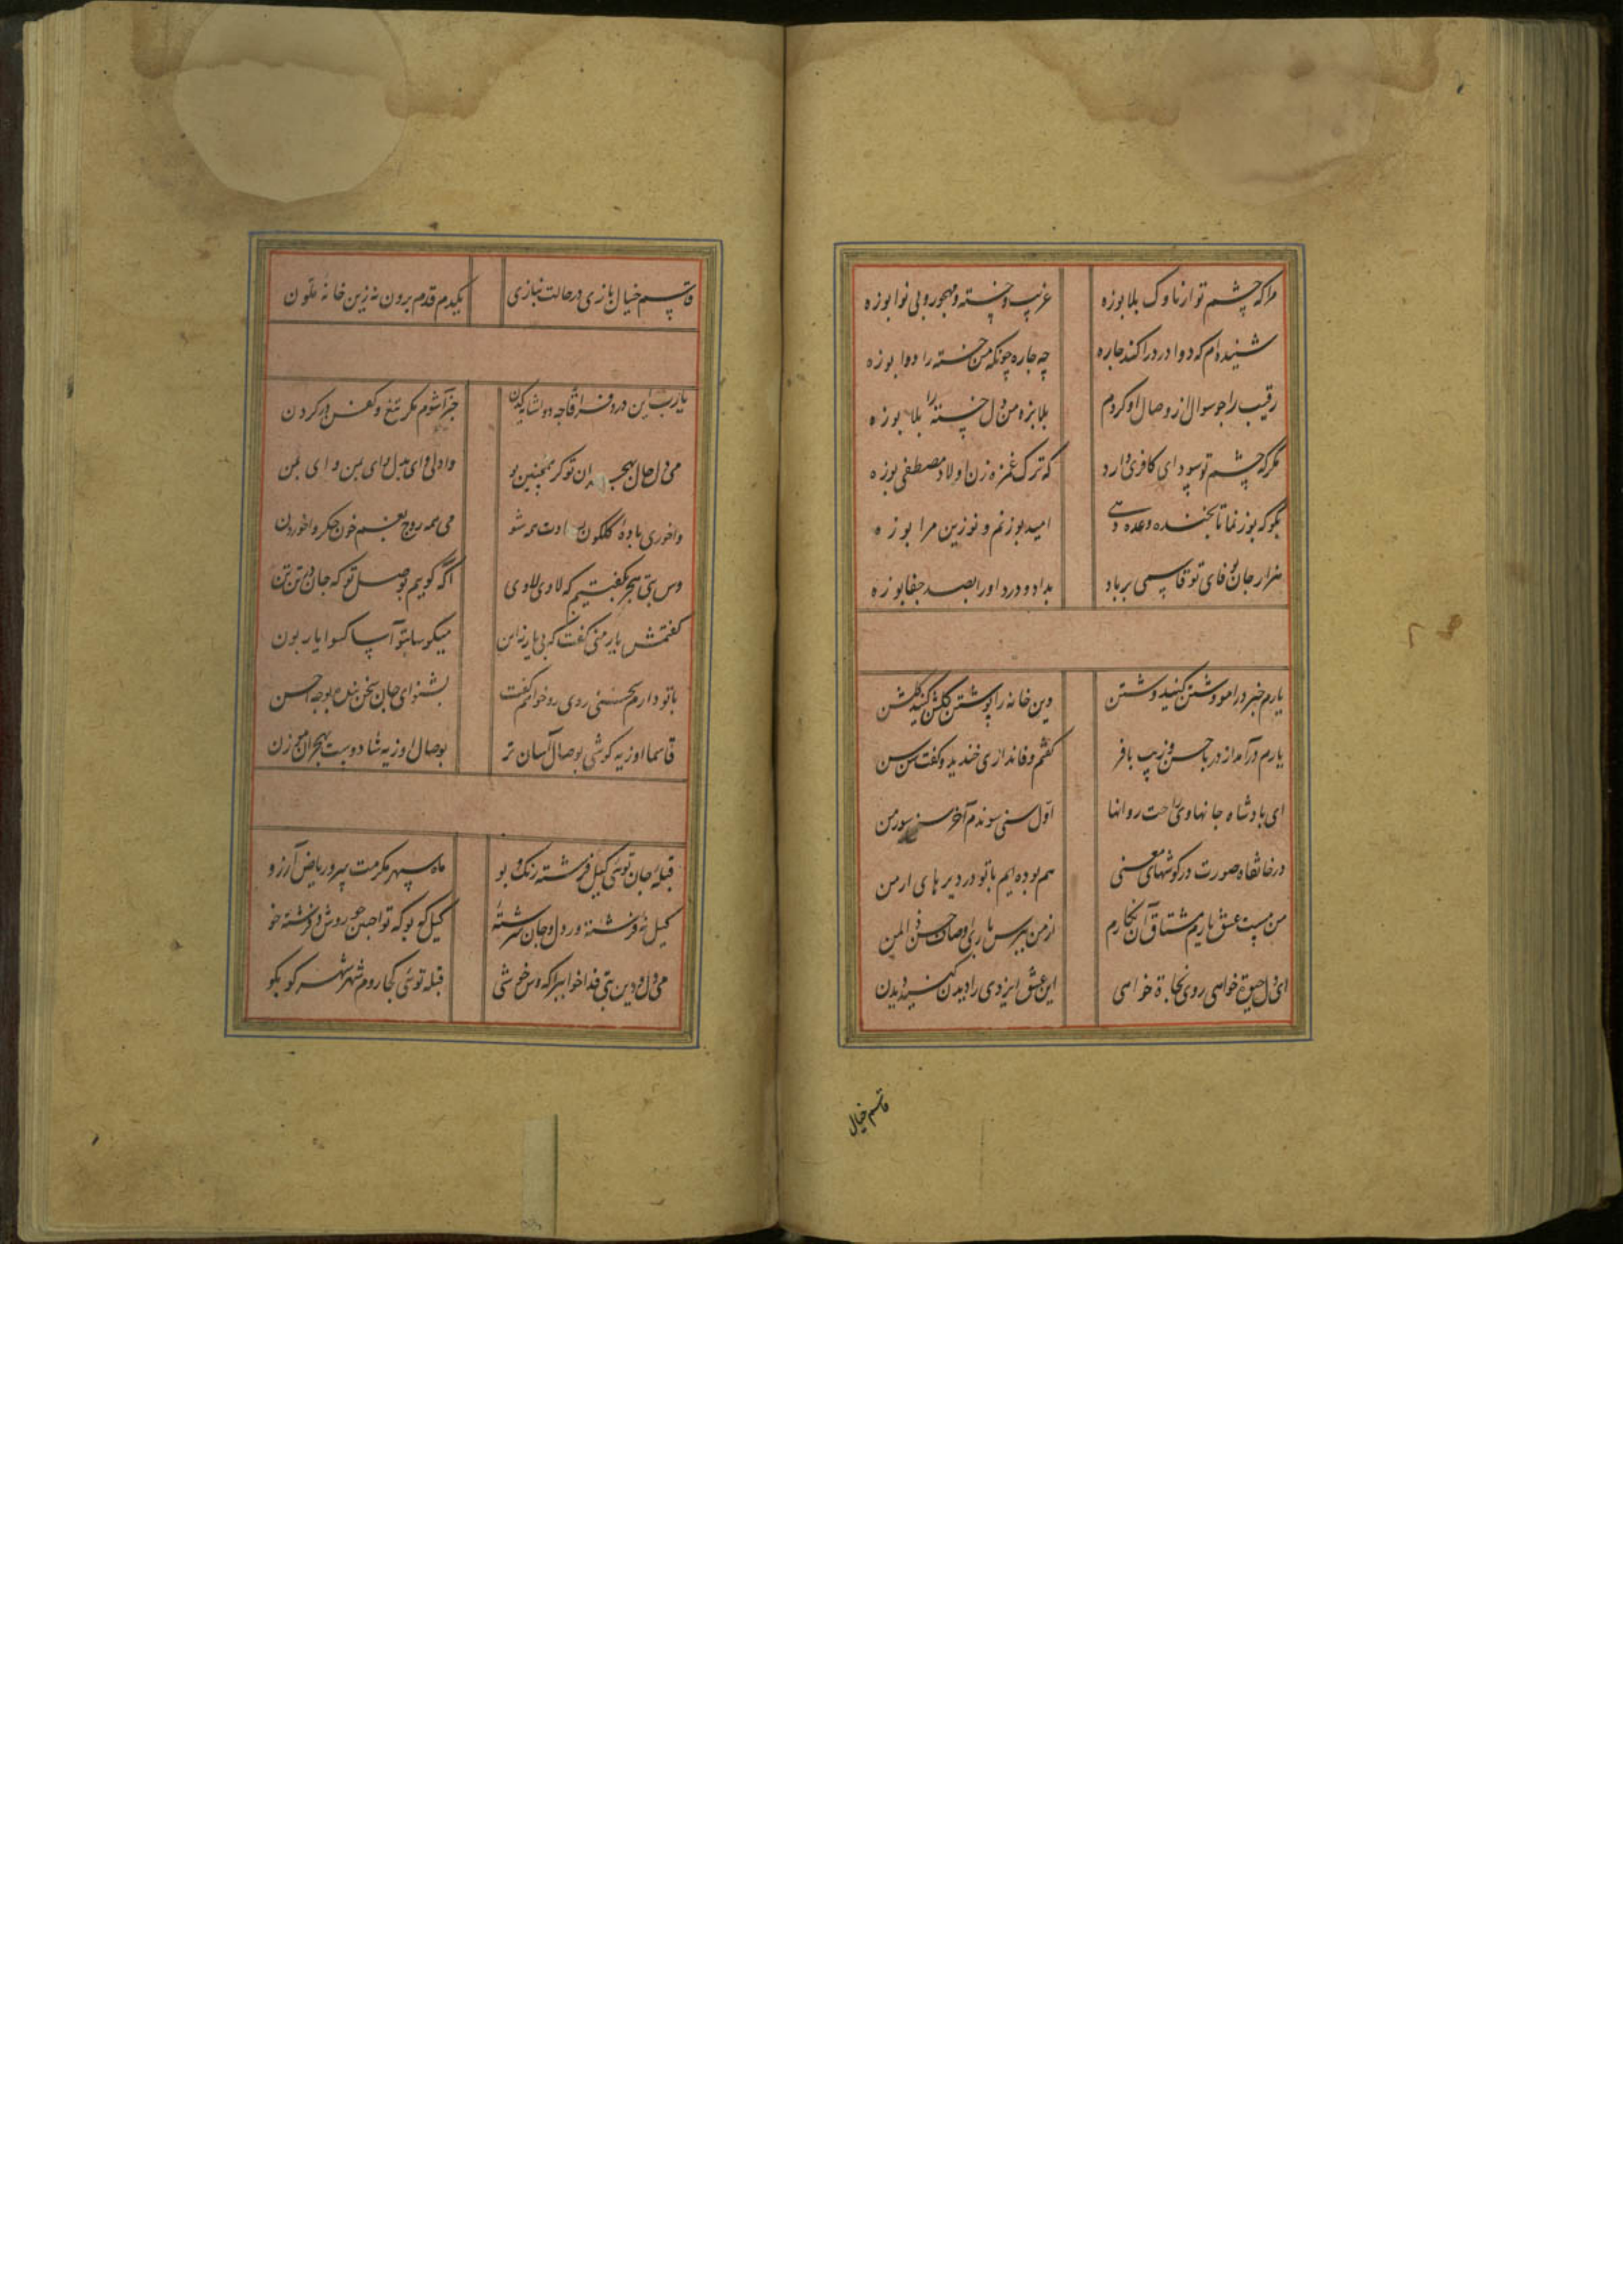 مرا که چشم تو از ناوک بلا بوزه
غریب و خسته و مهجور و بی نوا بوزه
شنیده ام که دوا درد را کند چاره
چه چاره چونکه من خسته را دوا بوزه
رقیب را چو سوال از وصال او کردم
بلا بزه من دل خسته را بلا بوزه
مگر که چشم تو سودای کافری دارد
که ترک غمزه زن اولاد مصطفی بوزه
بگو که بوز نما تا بخنده وعده دهی
امید بوزنم و نوزین مرا بوزه
هزار جان بوفای تو قاسمی بر باد
بداد و درد او را بصد جفا بوزه
یارم خبر در امو وشتن کنید وشتن
وین خانه را بوشتن گلشن کنید گلشن
یارم درآمد از در با حسن و زیب با فر
گفتم وفا نداری خندید و گفت سن سن
ای پادشاه جانها وی راحت روانها
اول سنی سوندم آخر سنی سورمن
در خانقاه صورت در گوشهای معنی
هم بوده ایم با تو در دیرهای ارمن
من مست عشق یارم مشتاق آن نگارم
از من بپرس باری اوصاف حسن ذی المن
ای دل حیوة خواهی روی نجاة خواهی
این عشق ایزدی را دیدن کنید دیدن
قاسم خیال
قاسم خیال بازی در حالت نیازی
یکدم قدم برون نه زین خانه ملون
یارب این درد فراقا چه دوا شاید کردن
جز آشوم مگر تیغ و کفن در گردن
می دل حال بهجران تو گر همچنین بو
وا دلی وای بدل وای بمن وای بمن
واخوری باده گلگون همه شو
می همه روج بغم خون جگر واخوردن
وس بتی هجر بگفتیم که لاوی لاوی
اگه گویم بوصل تو که جان در تن تن
گفتمش یار منی گفت که بی یار نه این
میگو سابتو آسا کسوا یار بون
با تو دارم سخنی روی روخوا کم گفت
بشنو ای جان سخن بنده بوجه احسن
قاسما اوزیه کوشی بوصال آسان تر
بوصال اوزیه شادوبت بهجران موزن
قبله جان توئی گیل فرشته رنگ و بو
ماه سپهر مکرمت سرو ریاض آرزو
گیل نه فرشته در دل و جان سرشته
گیل گو بو که تو اجین حور وش و فرشته خو
می دل و دین بتی فدا خوا ببرا که وس خوشی
قبله توئی کجا روم شهر بشهر کو بکو